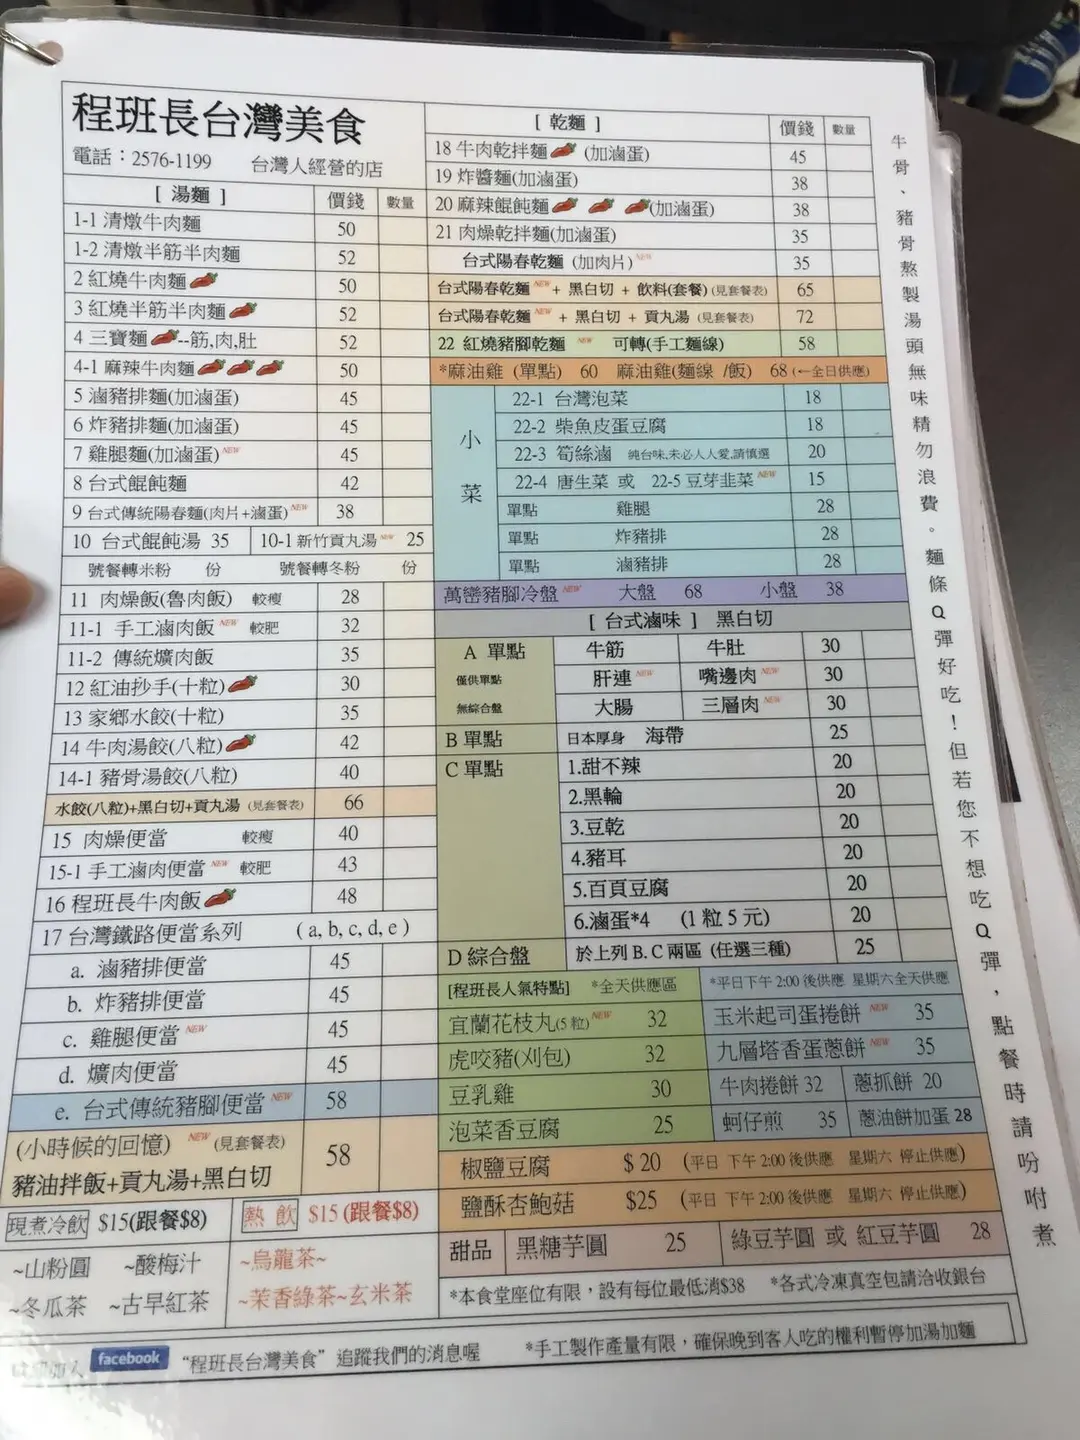 程班長台灣美食
電話：2576-1199 台灣人經營的店
[ 湯麵 ] 價錢 數量
1-1 清燉牛肉麵 50
1-2 清燉半筋半肉麵 52
2 紅燒牛肉麵 50
3 紅燒半筋半肉麵 52
4 三寶麵--筋,肉,肚 52
4-1 麻辣牛肉麵 50
5 滷豬排麵(加滷蛋) 45
6 炸豬排麵(加滷蛋) 45
7 雞腿麵(加滷蛋) NEW 45
8 台式餛飩麵 42
9 台式傳統陽春麵(肉片+滷蛋) NEW 38
10 台式餛飩湯 35 10-1 新竹貢丸湯 NEW 25
號餐轉米粉 份 號餐轉冬粉 份
11 肉燥飯(魯肉飯) 較瘦 28
11-1 手工滷肉飯 NEW 較肥 32
11-2 傳統爌肉飯 35
12 紅油抄手(十粒) 30
13 家鄉水餃(十粒) 35
14 牛肉湯餃(八粒) 42
14-1 豬骨湯餃(八粒) 40
水餃(八粒)+黑白切+貢丸湯 (見套餐表) 66
15 肉燥便當 較瘦 40
15-1 手工滷肉便當 NEW 較肥 43
16 程班長牛肉飯 48
17 台灣鐵路便當系列 ( a, b, c, d, e )
a. 滷豬排便當 45
b. 炸豬排便當 45
c. 雞腿便當 NEW 45
d. 爌肉便當 45
e. 台式傳統豬腳便當 NEW 58
(小時候的回憶) NEW (見套餐表)
豬油拌飯+貢丸湯+黑白切 58
現煮冷飲 $15(跟餐$8)
~山粉圓 ~酸梅汁
~冬瓜茶 ~古早紅茶
熱 飲 $15 (跟餐$8)
~烏龍茶~
~茉香綠茶~玄米茶
[ 乾麵 ] 價錢 數量
18 牛肉乾拌麵 (加滷蛋) 45
19 炸醬麵(加滷蛋) 38
20 麻辣餛飩麵 (加滷蛋) 38
21 肉燥乾拌麵(加滷蛋) 35
台式陽春乾麵 (加肉片) NEW 35
台式陽春乾麵 NEW + 黑白切 + 飲料(套餐) (見套餐表) 65
台式陽春乾麵 NEW + 黑白切 + 貢丸湯 (見套餐表) 72
22 紅燒豬腳乾麵 NEW 可轉(手工麵線) 58
*麻油雞 (單點) 60 麻油雞(麵線 /飯) 68 (←全日供應)
小菜
22-1 台灣泡菜 18
22-2 柴魚皮蛋豆腐 18
22-3 筍絲滷 純台味,未必人人愛,請慎選 20
22-4 唐生菜 或 22-5 豆芽韭菜 NEW 15
單點 雞腿 28
單點 炸豬排 28
單點 滷豬排 28
萬巒豬腳冷盤 NEW 大盤 68 小盤 38
[ 台式滷味 ] 黑白切
A 單點 牛筋 牛肚 30
僅供單點 肝連 NEW 嘴邊肉 NEW 30
無綜合盤 大腸 三層肉 NEW 30
B 單點 日本厚身 海帶 25
C 單點 1.甜不辣 20
2.黑輪 20
3.豆乾 20
4.豬耳 20
5.百頁豆腐 20
6.滷蛋*4 (1 粒 5 元) 20
D 綜合盤 於上列 B. C 兩區 (任選三種) 25
[程班長人氣特點] *全天供應區
宜蘭花枝丸(5 粒) NEW 32
虎咬豬(刈包) 32
豆乳雞 30
泡菜香豆腐 25
*平日下午 2:00 後供應 星期六全天供應
玉米起司蛋捲餅 NEW 35
九層塔香蛋蔥餅 NEW 35
牛肉捲餅 32 蔥抓餅 20
蚵仔煎 35 蔥油餅加蛋 28
椒鹽豆腐 $ 20 (平日 下午 2:00 後供應 星期六 停止供應)
鹽酥杏鮑菇 $25 (平日 下午 2:00 後供應 星期六 停止供應)
甜品 黑糖芋圓 25 綠豆芋圓 或 紅豆芋圓 28
*本食堂座位有限，設有每位最低消$38 *各式冷凍真空包請洽收銀台
加入 facebook “程班長台灣美食” 追蹤我們的消息喔 *手工製作產量有限，確保晚到客人吃的權利暫停加湯加麵
牛骨、豬骨熬製湯頭無味精勿浪費。麵條Q彈好吃！但若您不想吃Q彈，點餐時請吩咐煮